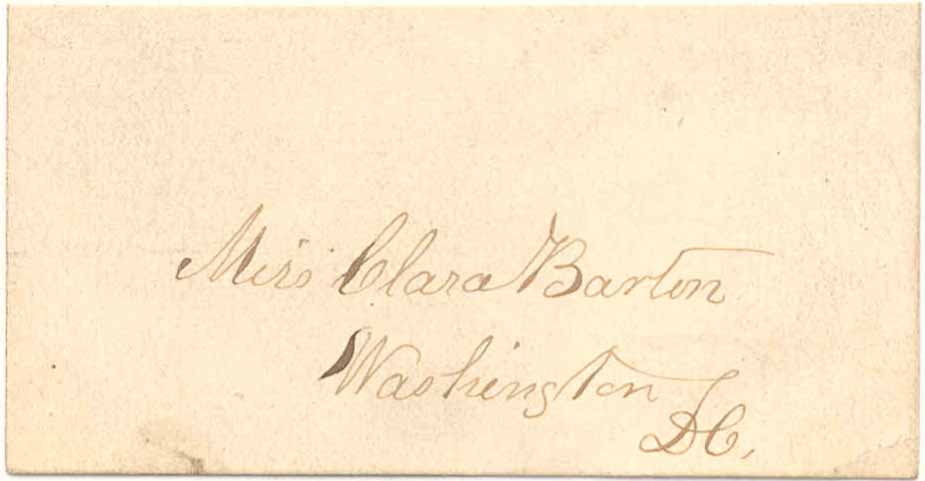 Miss Clara Barton
Washington
DC.